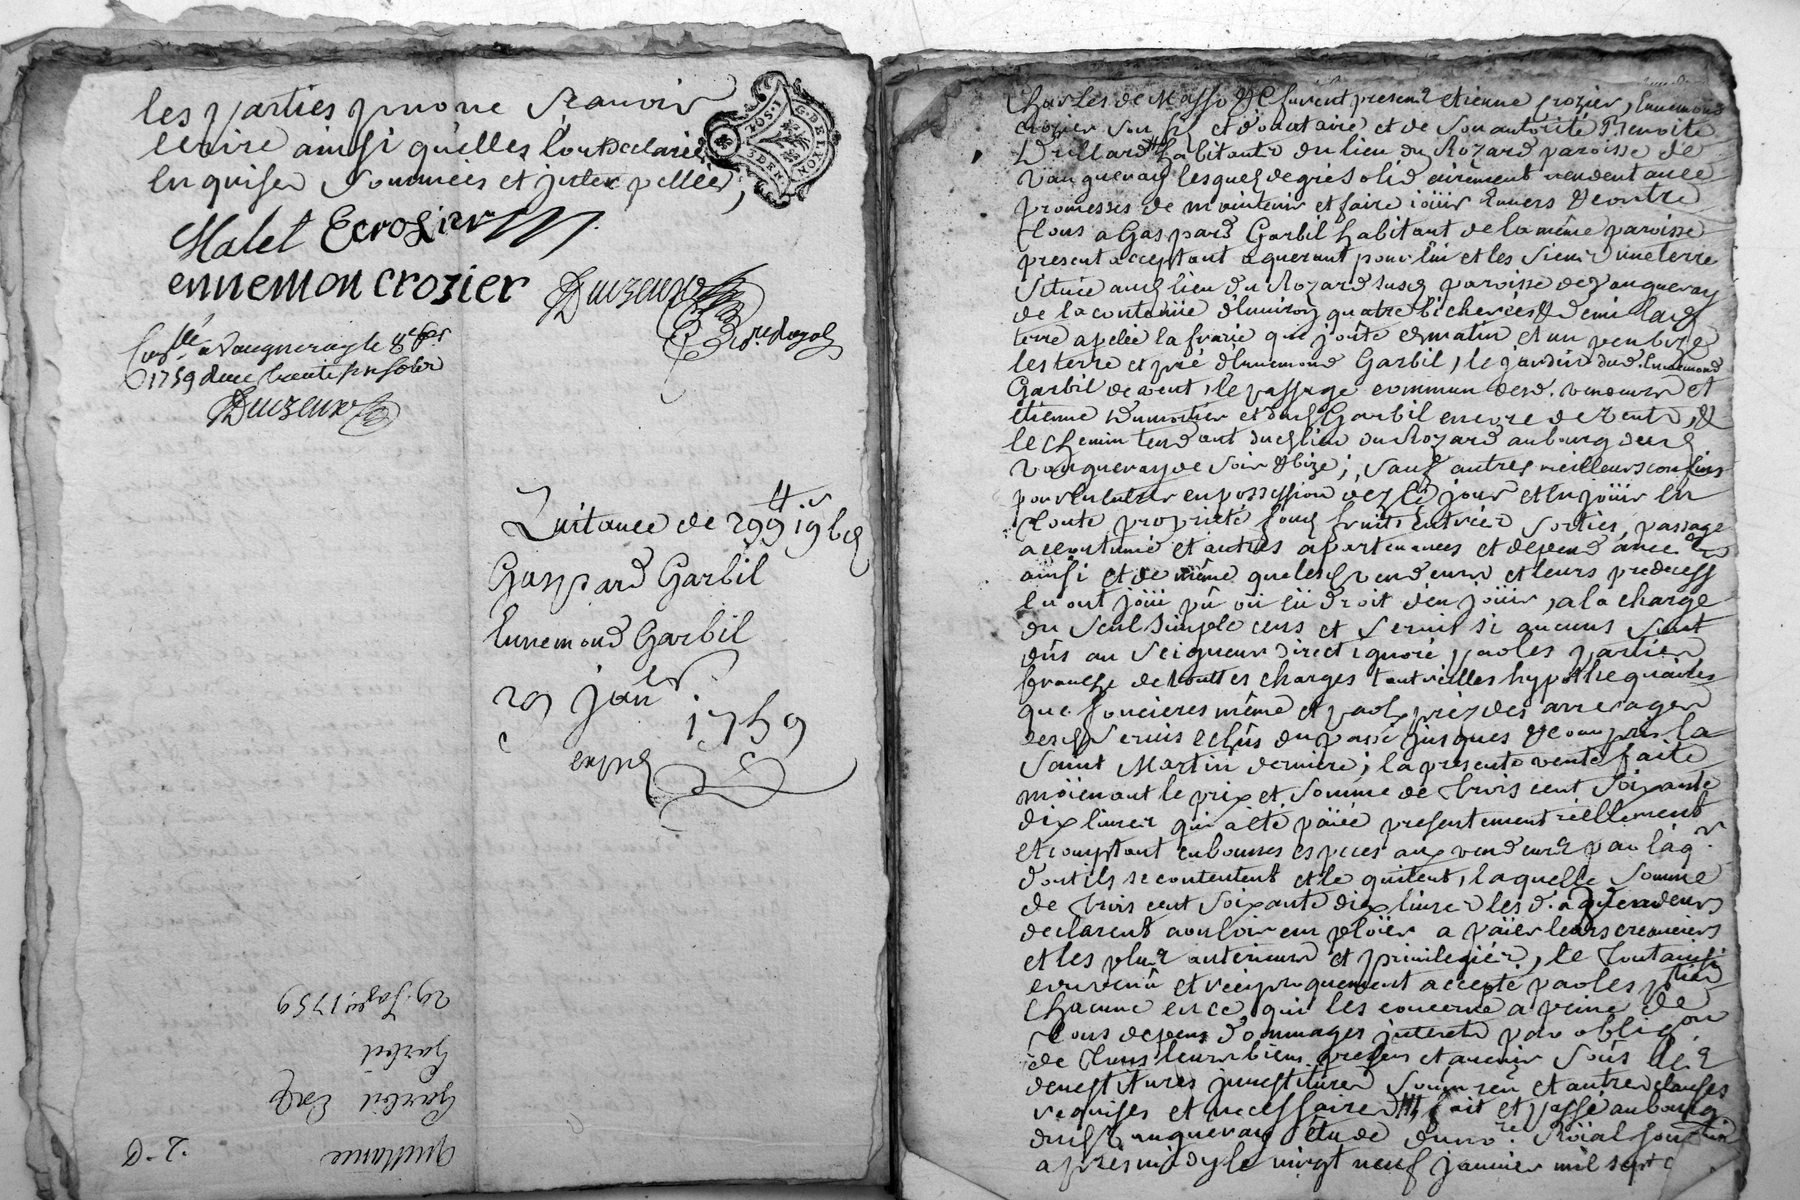 les parties pour ne sçavoir
ecrire ainsi qu'elles l'ont declaré
enquises sommées et interpellées
G. DE LYON
Malet Ecrozier
ennemon crozier
Duizeux
nre Royal
a Vaugneray le 8e
1759
Duizeux
Quitance de 299 ₶ 19 s
Gaspard Garbil
Ennemond Garbil
29 janr.
1759
exped
29. Janv. 1759
Garbil
Garbil
Quittance
Charles de Masso &c furent present etienne crozier, Ennemond
crozier son fils et donataire et de son autorité Benoite
habitants du lieu du Rozard paroisse de
Vaugneray lesquels de gré solidairement vendent avec
promesses de maintenir et faire joüir Envers &contre
tous a Gaspard Garbil habitant de la même paroisse
present acceptant aquerant pour lui et les siens une terre
située aud lieu du Rozard susd paroisse de Vaugneray
de la contenüe d'environ quatre bicherées & demi lad
terre apelée la frarie qui joute de matin et un peu bize
les terre et pré d'Ennemond Garbil, le jardin dud. Ennemond
Garbil de vent, le passage commun desd. vendeurs et
etienne Dumortier et dud Garbil encore de vent, &
le chemin tendant dud lieu du Rozard au bourg dud
Vaugneray de soir & bize; sauf autres meilleurs confins
pour en entrer en possession dez ce jour et en joüir en
toute proprieté fond fruits entrées sorties, passage
accoutumé et autres apartenances et dependances
ainsi et de même que lesd vendeurs et leurs predecess
en ont joüi pû où eü droit d'en joüir, a la charge
du seul simple cens et servis si aucuns sont
dûs au Seigneur direct ignoré par les parties
franche de touttes charges tant vieilles hypothequaires
que foncieres même et par exprez des arrerages
desd servis echûs du passé jusques & compris la
Saint Martin derniere; la presente vente faite
möienant le prix et somme de trois cent soixante
dix livres qui a eté païée presentement réellement
et comptant en bonnes especes aux vendeurs par l'aqr.
dont ils se contentent et le quitent, laquelle somme
de trois cent soixante dix livres les d.
declarent vouloir emploïer a païer leurs creanciers
et les plus anterieurs et privilegiés, le tout ainsi
convenû et reciproquement accepté par les pties
chacune en ce qui les concerne a peine de
tous depens dommages interets par obligon
de tous leurs biens presens et avenir sous les
devestitures investitures soumron et autres clauses
requises et necessaires fait et passé au bourg
dud Vaugneray etude dud nore. Roïal soussigné
après midy le vingt neuf janvier mil sept c